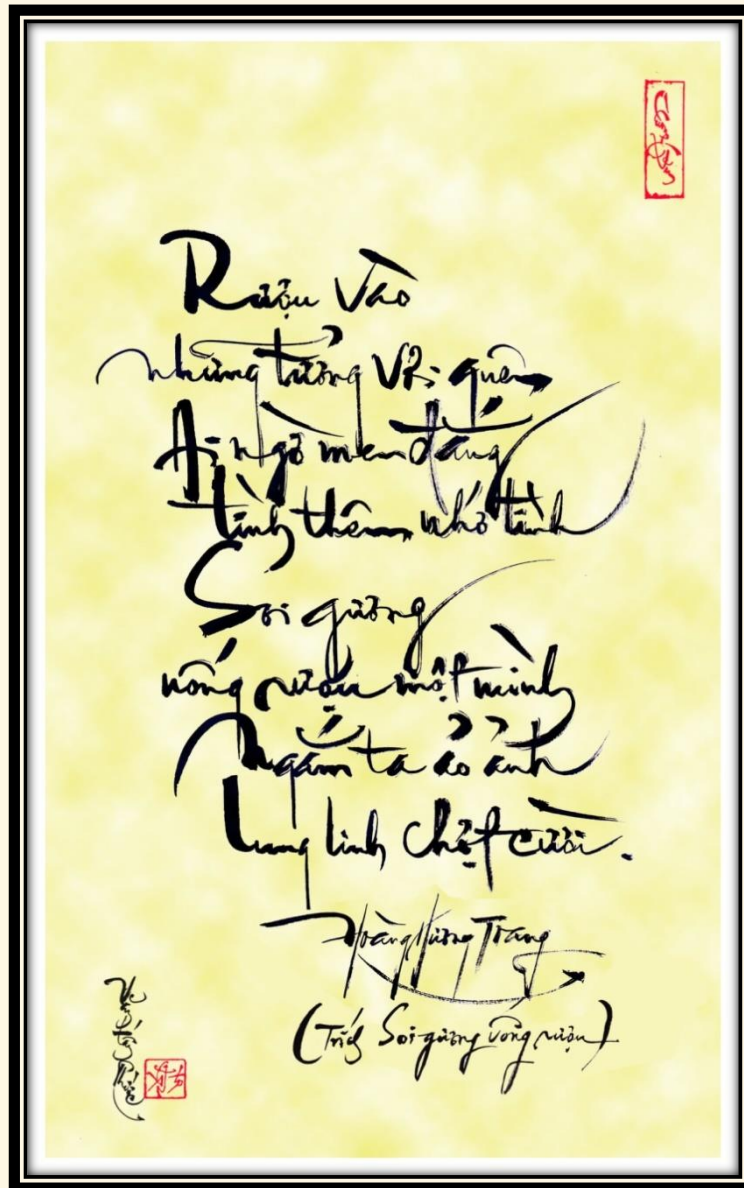 Rượu Vào
những tưởng Vơi quên
Ai ngờ men đắng
tình thêm nhớ tình
Soi gương
uống rượu một mình
Ngắm ta ảo ảnh
Lung linh chợt cười.
Hoàng Hương Trang
(Trích Soi gương uống rượu)